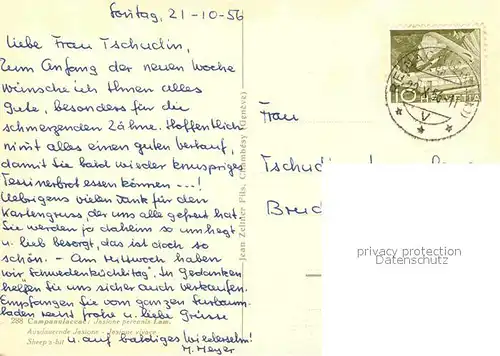 Sontag, 21-10-56
Liebe Frau Tschudin,
Zum Anfang der neuen Woche
wünsche ich Ihnen alles
Gute, besonders für die
schmerzenden Zähne. Hoffentlich
nimt alles einen guten Verlauf,
damit Sie bald wieder knuspriges
Tessinerbrot essen können ---!
Uebrigens vielen Dank für den
Kartengruss der uns alle gefreut hat.
Sie werden ja daheim so umhegt
u. lieb besorgt, das ist doch so
schön. - Am Mittwoch haben
wir "Schwedenküchlitag". In Gedanken
helfen Sie uns sicher auch verkaufen.
Empfangen Sie vom ganzen
laden recht frohe u. liebe Grüsse
u. auf baldiges Wiedersehn!
M. Meyer
298 Campanulaceae: Jasione perennis Lam.
Ausdauernde Jasione - Jasione vivace
Sheep's-bit
Jean Zellner Fils, Chambésy (Genève)
10
V
Frau
Tschudin
Breid
privacy protection
Datenschutz